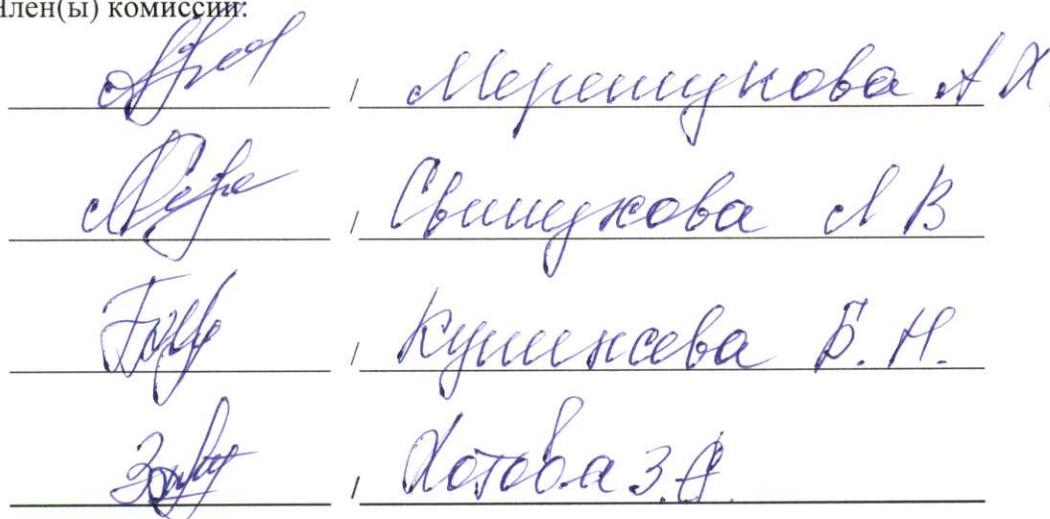 Член(ы) комиссии:
/ Мерешукова А Х
/ Свишукова Л В
/ Кушхова Б. Н.
/ Хотова З.А.